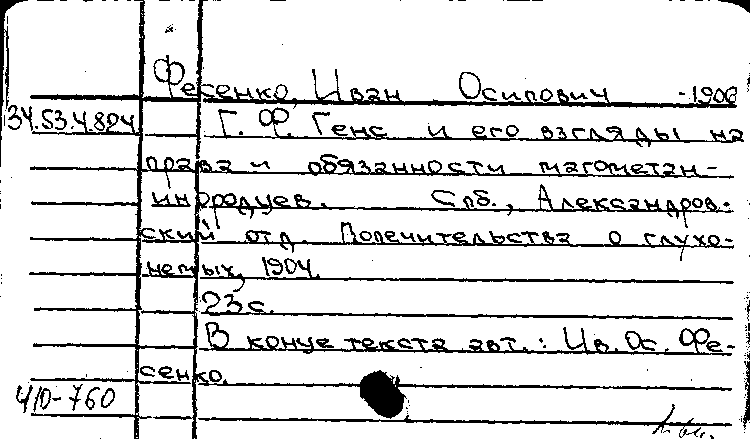 Фесенко, Иван Осипович -1906
34.53.4.894 Г. Ф. Генс и его взгляды на
права и обязанности магометан-
инородцев. Спб., Александров-
ский отд. Попечительства о глухо-
немых, 1904.
23с.
В конце текста авт.: Ив. Ос. Фе-
сенко.
410-760